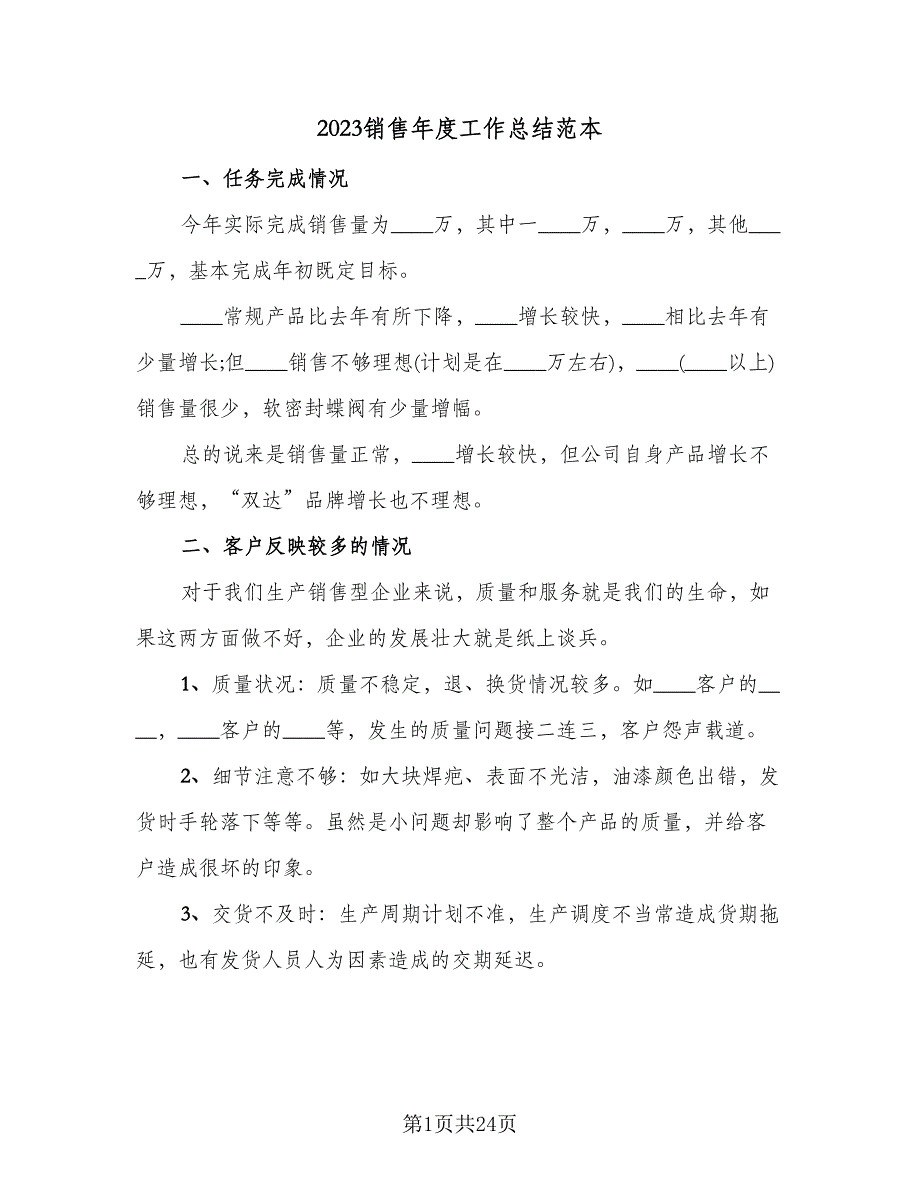 2023销售年度工作总结范本
一、任务完成情况
今年实际完成销售量为____万，其中一____万，____万，其他___
_万，基本完成年初既定目标。
____常规产品比去年有所下降，____增长较快，____相比去年有
少量增长;但____销售不够理想(计划是在____万左右)，____(____以上)
销售量很少，软密封蝶阀有少量增幅。
总的说来是销售量正常，____增长较快，但公司自身产品增长不
够理想，“双达”品牌增长也不理想。
二、客户反映较多的情况
对于我们生产销售型企业来说，质量和服务就是我们的生命，如
果这两方面做不好，企业的发展壮大就是纸上谈兵。
1、质量状况：质量不稳定，退、换货情况较多。如____客户的__
__，____客户的____等，发生的质量问题接二连三，客户怨声载道。
2、细节注意不够：如大块焊疤、表面不光洁，油漆颜色出错，发
货时手轮落下等等。虽然是小问题却影响了整个产品的质量，并给客
户造成很坏的印象。
3、交货不及时：生产周期计划不准，生产调度不当常造成货期拖
延，也有发货人员人为因素造成的交期延迟。
第1页共24页